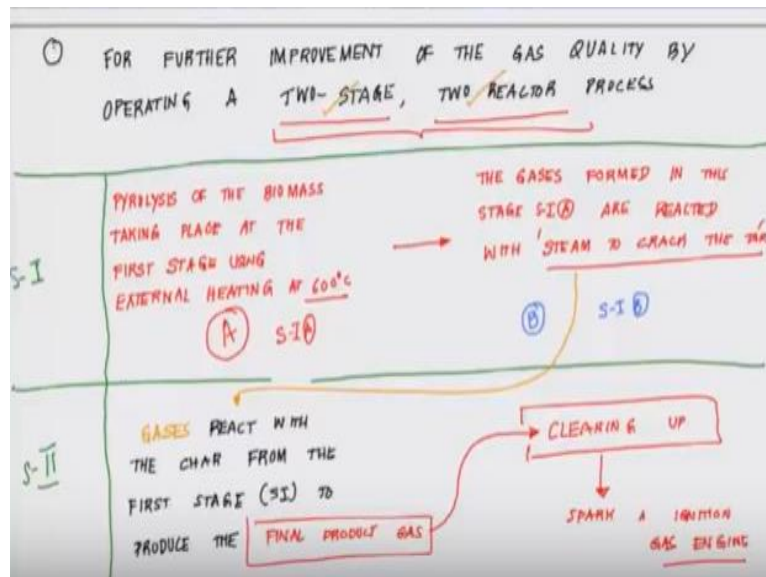 FOR FURTHER IMPROVEMENT OF THE GAS QUALITY BY
OPERATING A TWO-STAGE, TWO REACTOR PROCESS
S-I
PYROLYSIS OF THE BIOMASS
TAKING PLACE AT THE
FIRST STAGE USING
EXTERNAL HEATING AT 600°C
A S-I A
THE GASES FORMED IN THIS
STAGE S-I A ARE REACTED
WITH 'STEAM TO CRACK THE TAR'
B S-I B
S-II
GASES REACT WITH
THE CHAR FROM THE
FIRST STAGE (SI) TO
PRODUCE THE FINAL PRODUCT GAS
CLEARING UP
SPARK A IGNITION
GAS ENGINE